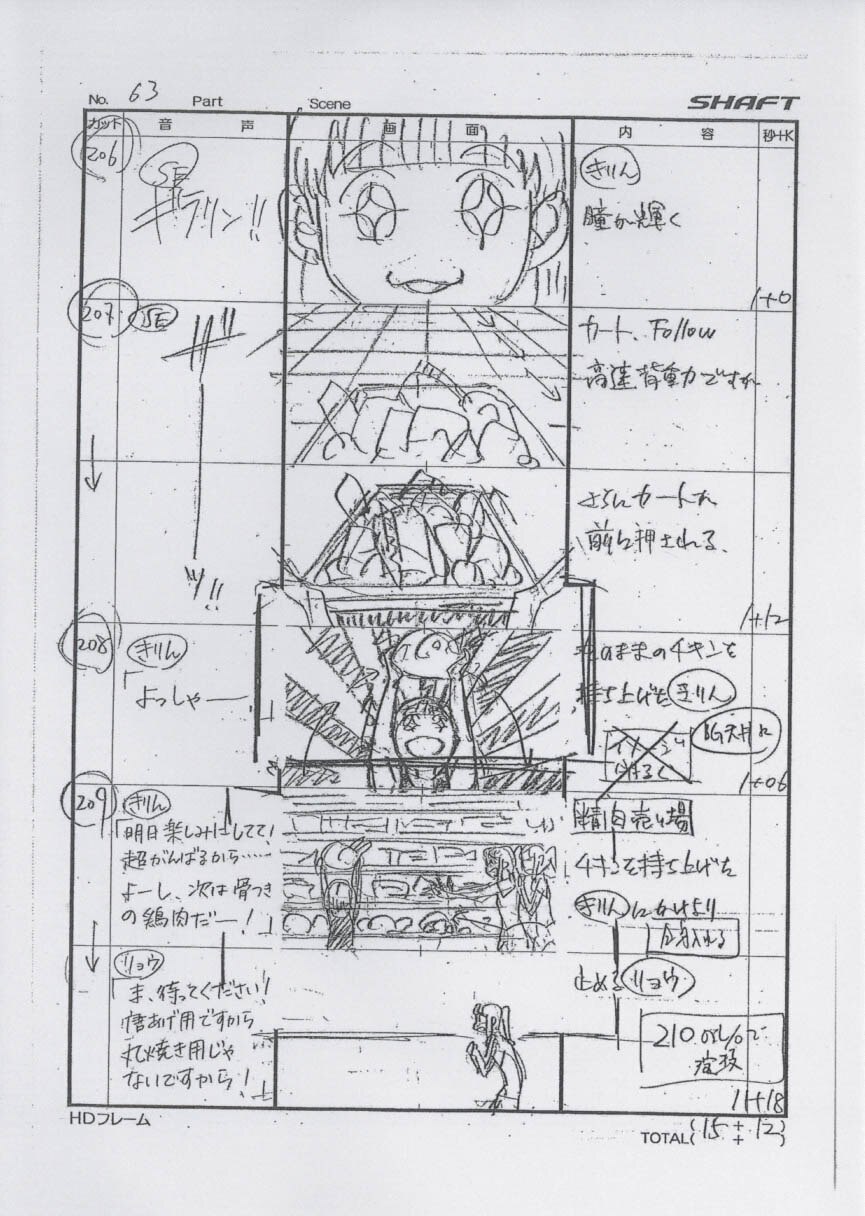 No. 63 Part Scene SHAFT
カット 音声 画面 内容 秒+K
206
SE
ギラリン!!
きりん
瞳が輝く
1+0
207
SE
ザ
ッ!!
カート、Follow
さらにカートが
前に押される。
1+12
208
きりん
「よっしゃー」
まるままのチキンを
持ち上げた きりん
BG天井に
1+06
209
きりん
「明日楽しみにしてて!
超がんばるから……
よーし、次は骨つき
の鶏肉だー!」
精肉売り場
チキンを持ち上げた
きりん にかけより
リョウ
「ま、待ってください!
唐あげ用ですから
丸焼き用じゃ
ないですから!」
止める リョウ
11+18
HDフレーム
TOTAL(15+12)